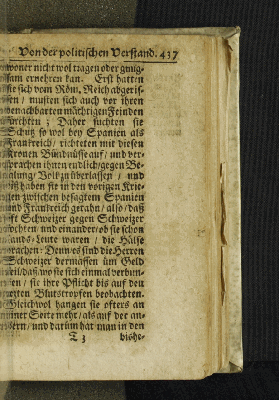 Von der politischen Verstand. 437
woner nicht wol tragen oder gnug-
sam ernehren kan. Erst hatten
sie sich vom Röm. Reich abgeris-
sen / musten sich auch vor ihren
benachbarten mächtigen Feinden
fürchten; Daher suchten sie
Schutz so wol bey Spanien als
Franckreich / richteten mit diesen
Kronen Bündnüsse auf / und ver-
sprachen ihnen endlich / gegen Be-
zahlung / Volck zu überlassen / und
diß haben sie in den vorigen Krie-
gen zwischen besagtem Spanien
und Franckreich gethan / also / daß
oft Schweitzer gegen Schweitzer
fochten / und einander / ob sie schon
Lands-Leute waren / die Hälse
brachen: Denn es sind die Herren
Schweitzer dermassen üm Geld
feil / daß / wo sie sich einmal verbun-
den / sie ihre Pflicht bis auf den
letzten Blutstropfen beobachten.
Gleichwol hangen sie öfters an
einer Seite mehr / als auf der an-
dern / und darüm hat man in den
T 3 bishe-